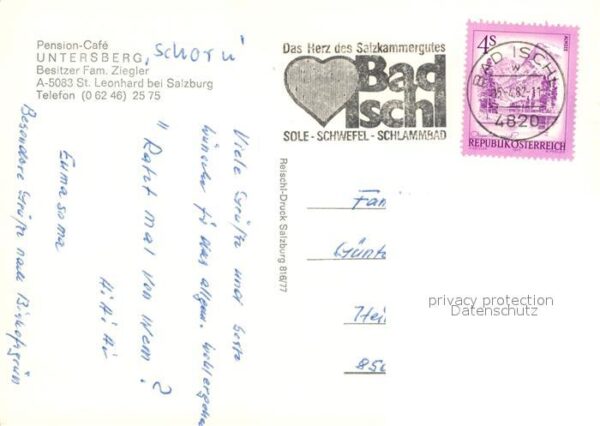 Pension-Café
UNTERSBERG, "Schorn"
Besitzer Fam. Ziegler
A-5083 St. Leonhard bei Salzburg
Telefon (0 62 46) 25 75
Das Herz des Salzkammergutes
Bad
Ischl
SOLE - SCHWEFEL - SCHLAMMBAD
4S
BAD ISCHL
4820
REPUBLIK ÖSTERREICH
Viele Grüße und beste
Wünsche für das allgem. Wohlergehen
"Ratet mal von Wem?
Hi Hi Hi
Besondere Grüße nach Bischofsgrün
Reischl-Druck Salzburg 816/77
Fam
Günt
Hei
850
privacy protection
Datenschutz